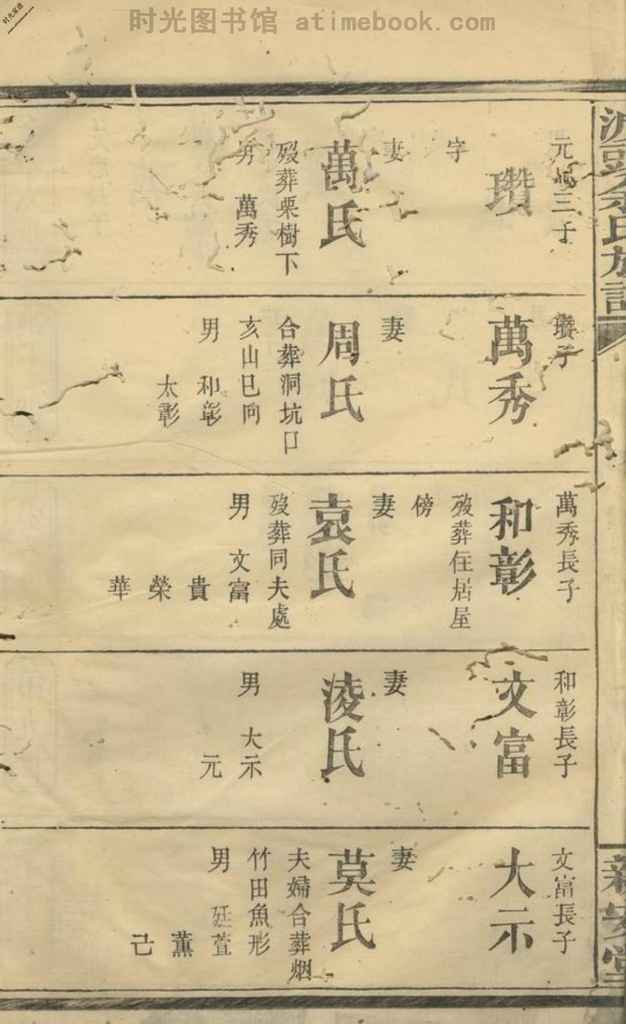 时光图书馆 atimebook.com
氏族譜
元三子
瓚
字
妻
萬氏
歿葬栗樹下
男 萬秀
瓚子
萬秀
妻
周氏
合葬洞坑口
亥山巳向
男 和彰
太彰
萬秀長子
和彰
歿葬住居屋
傍
妻
袁氏
歿葬同夫處
男 文富
貴
榮
華
和彰長子
文富
妻
凌氏
男 大示
元
文富長子
大示
妻
莫氏
夫婦合葬烟
竹田魚形
男 廷萱
薰
己
新安堂